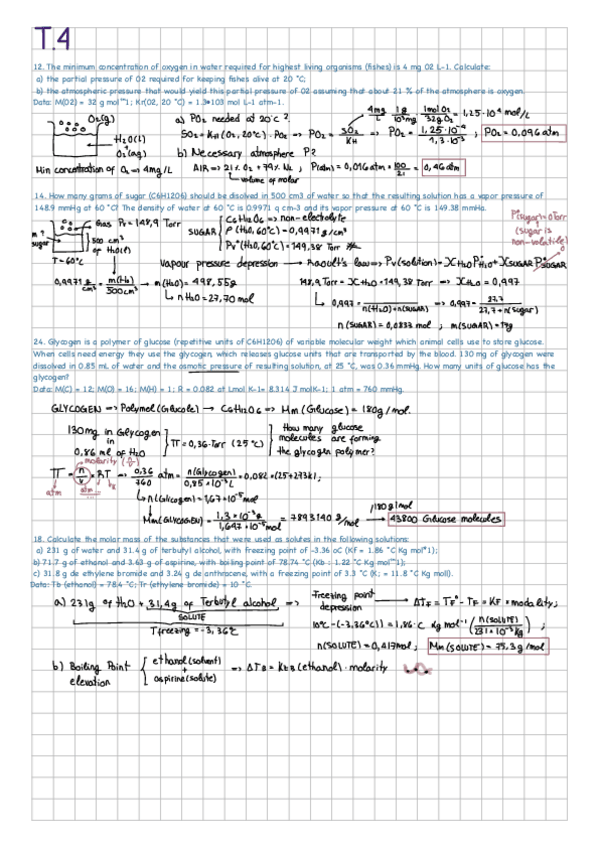 T.4
12. The minimum concentration of oxygen in water required for highest living organisms (fishes) is 4 mg O2 L-1. Calculate:
a) the partial pressure of O2 required for keeping fishes alive at 20 °C;
b) the atmospheric pressure that would yield this partial pressure of O2 assuming that about 21 % of the atmosphere is oxygen.
Data: M(O2) = 32 g mol
O2(g)
H2O(l)
O2(aq)
Min concentration of O2 => 4mg/L
a) PO2 needed at 20°C ?
4mg/L · 1g/10³mg · 1molO2/32gO2 = 1,25·10⁻⁴ mol/L
SO2 = KH (O2, 20°C) · PO2 => PO2 = SO2/KH => PO2 = 1,25·10⁻⁴/1,3·10⁻³ ; PO2 = 0,096 atm
b) Necessary atmosphere P?
AIR => 21% O2 + 79% N2 | P(atm) = 0,096 atm · 100/21 = 0,46 atm
volume of molar
14. How many grams of sugar (C6H12O6) should be disolved in 500 cm3 of water so that the resulting solution has a vapor pressure of
148.9 mmHg at 60 °C! The density of water at 60 °C is 0.9971 g cm-3 and its vapor pressure at 60 °C is 149.38 mmHg.
m? sugar
Gas Pv = 148,9 Torr
500 cm³ of H2O(l)
T = 60°C
SUGAR
C6H12O6 => non-electolyte
ρ (H2O, 60°C) = 0,9971 g/cm³
Pv*(H2O, 60°C) = 149,38 Torr
P*sugar = 0Torr
(sugar is non-volatile)
Vapour pressure depression → Raoult's law => Pv(solution) = XH2O P*H2O + XSUGAR P*SUGAR
0
0,9971 g/cm³ = m(H2O)/500cm³ → m(H2O) = 498,55g
148,9 Torr = XH2O · 149,38 Torr => XH2O = 0,997
n H2O = 27,70 mol
0,997 = n(H2O)+n(SUGAR) => 0,997 = 27,7/27,7 + n(sugar)
n (SUGAR) = 0,0833 mol ; m(SUGAR) =
24. Glycogen is a polymer of glucose (repetitive units of C6H12O6) of variable molecular weight which animal cells use to store glucose.
When cells need energy they use the glycogen, which releases glucose units that are transported by the blood. 130 mg of glycogen were
dissolved in 0.85 mL of water and the osmatic pressure of resulting solution, at 25 °C, was 0.36 mmHg. How many units of glucose has the
glycogen?
Data: M(C) = 12; M(O) = 16; M(H) = 1; R = 0.082 at Lmol K-1= 8.314 J molK-1; 1 atm = 760 mmHg.
GLYCOGEN => Polymol (Glucole) → C6H12O6 => Mm (Glucose) = 180g/mol.
130mg in Glycogen
in
0,86 ml of H2O
Π = 0,36 Torr (25°C)
How many glucose
molecules are forming
the glycogen polymer?
molarity
Π = n/V · RT => 0,36/760 atm = n(Glycogen)/0,85·10⁻³L · 0,082 · (25+273k);
atm
n (Glicogen) = 1,67·10⁻⁵ mol
Mm (GLYCOGEN) = 1,3·10⁻¹g/1,647·10⁻⁵mol = 7893140 g/mol → 43800 Glucose molecules
/180g/mol
18. Calculate the molar mass of the substances that were used as solutes in the following solutions:
a) 231 g of water and 31.4 g of terbutyl alcohol, with freezing point of -3.36 oC (Kf = 1.86 °C Kg mol
b) 71.7 g of ethanol and 3.63 g of aspirine, with boiling point of 78.74 °C (Kb : 1.22 °C Kg mol
c) 31.8 g de ethylene bromide and 3.24 g de anthrocene, with a freezing point of 3.3 °C (K; = 11.8 °C Kg moll).
Data: Tb (ethanol) = 78.4 °C; Tr (ethylene bromide) = 10 °C.
a) 231g of H2O + 31,4g of Terbutyl alcohol =>
SOLUTE
Tfreezing = -3,36°C
Freezing point
depression
→ ΔTF = TF° - TF = KF · modality;
0°C - (-3,36°C) = 1,86·C Kg mol⁻¹ (n(solute)/231·10⁻³kg) ;
n(SOLUTE) = 0,417mol; Mm (SOLUTE) = 75,3g/mol
b) Boiling Point
elevation
ethanol (solvent)
+
aspirine (solute)
=> ΔTB = KEB (ethanol) · molarity